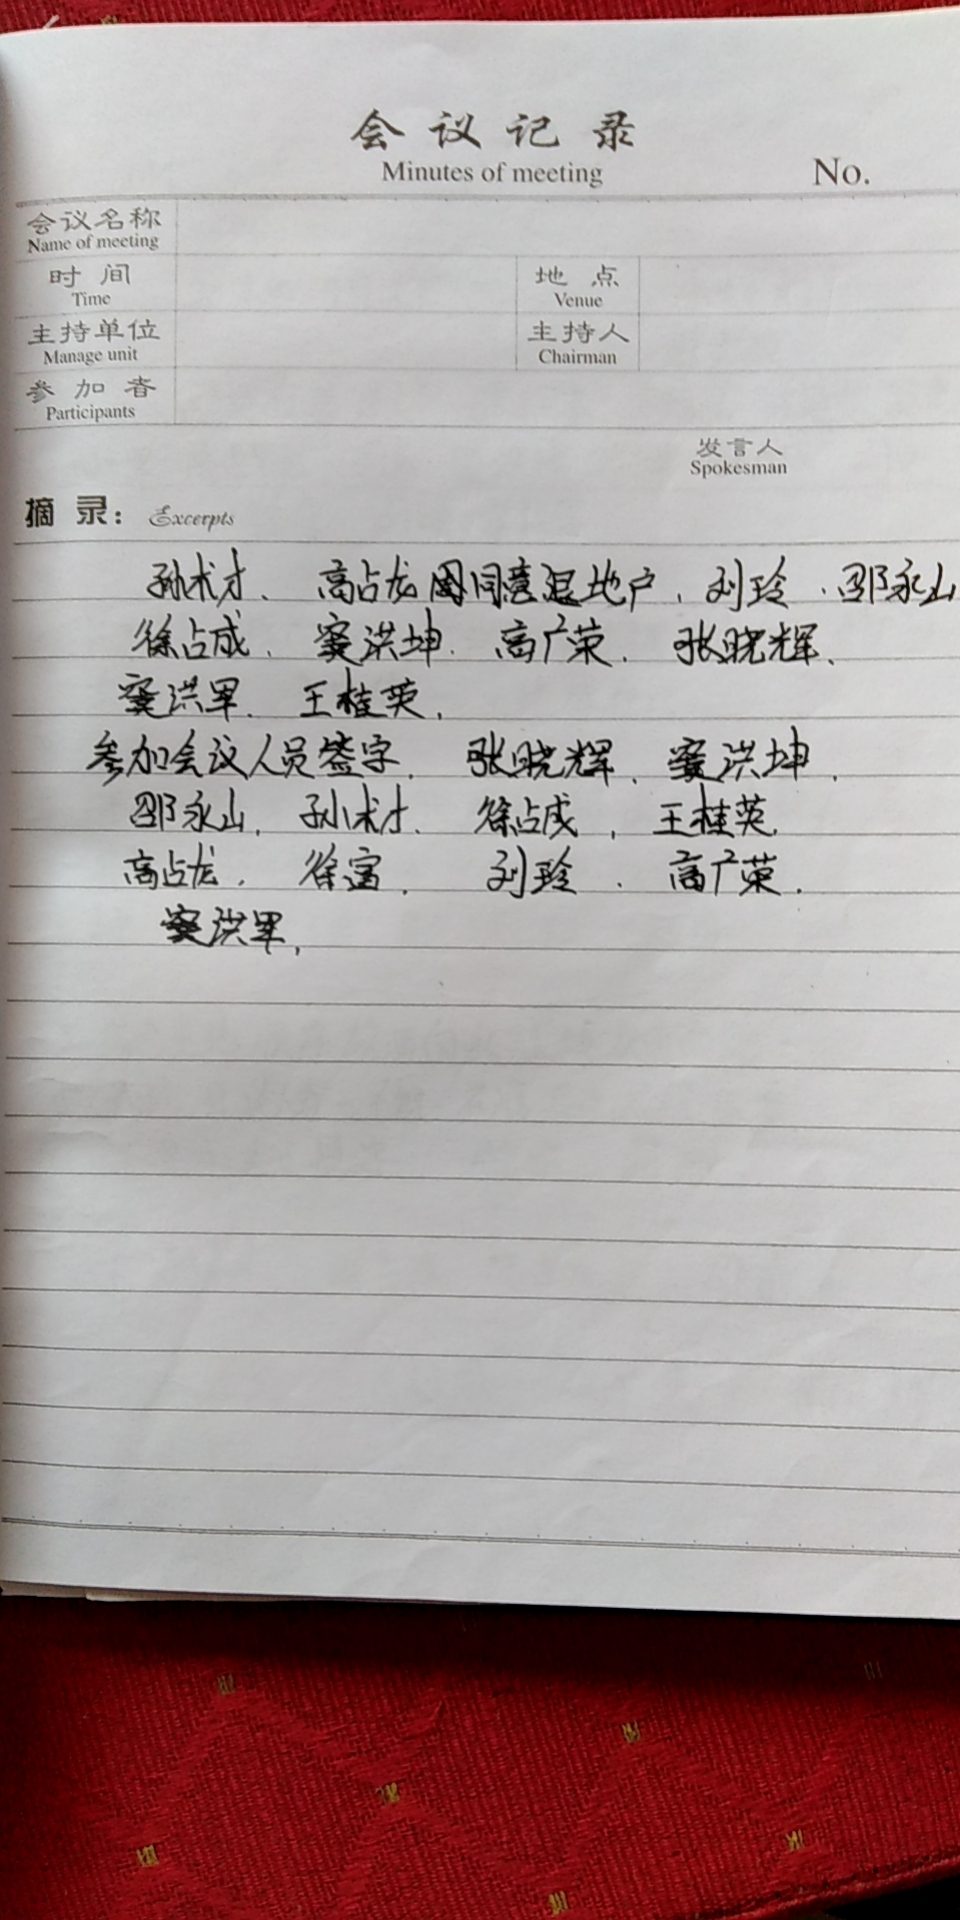 会议记录
Minutes of meeting
No.
会议名称
Name of meeting
时间
Time
地点
Venue
主持单位
Manage unit
主持人
Chairman
参加者
Participants
发言人
Spokesman
摘录：Excerpts
孙术才、高占龙 同意退地户、刘玲、邵永山
徐占成、窦洪坤、高广荣、张晓辉、
窦洪军、王桂英、
参加会议人员签字、张晓辉、窦洪坤、
邵永山、孙术才、徐占成、王桂英、
高占龙、徐富、刘玲、高广荣、
窦洪军、